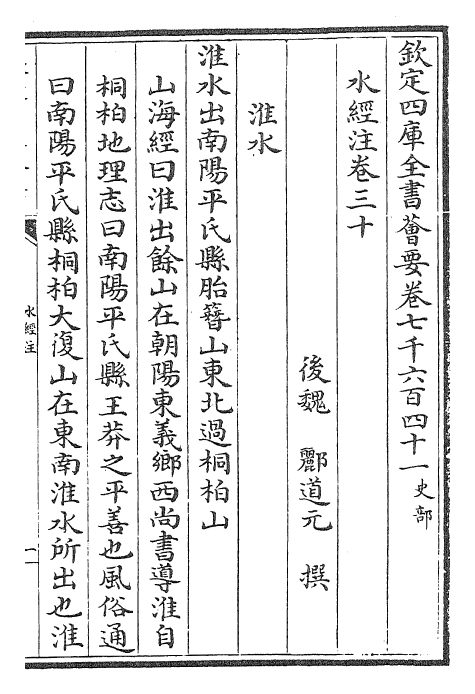 欽定四庫全書薈要卷七千六百四十一史部
水經注卷三十
後魏 酈道元 撰
淮水
淮水出南陽平氏縣胎簪山東北過桐柏山
山海經曰淮出餘山在朝陽東義鄉西尚書導淮自
桐柏地理志曰南陽平氏縣王莽之平善也風俗通
曰南陽平氏縣桐柏大復山在東南淮水所出也淮
水經注
一